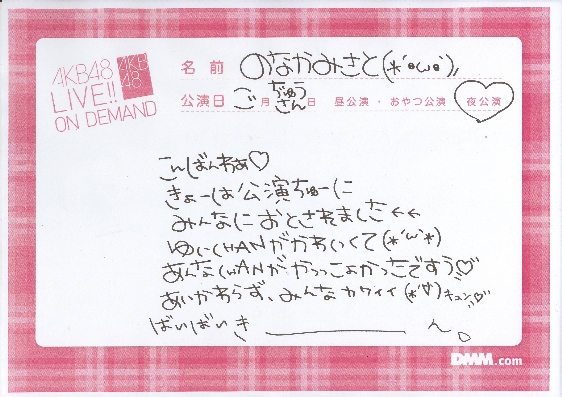 AKB48
LIVE!!
ON DEMAND
AKB
48
名前 のなかみさと(*´ω`)
公演日 ご月 じゅうさん日 昼公演・おやつ公演 夜公演
こんばんわぁ♡
きょーは公演ちゅーに
みんなにおとされました←←
ゆいCHANがかわいくて(*´ω`*)
あんなCHANがかっこよかったですう♡
あいかわらず、みんなカワイイ(*´∀`)キュン♡
ばいばいき――――ん。
DMM.com